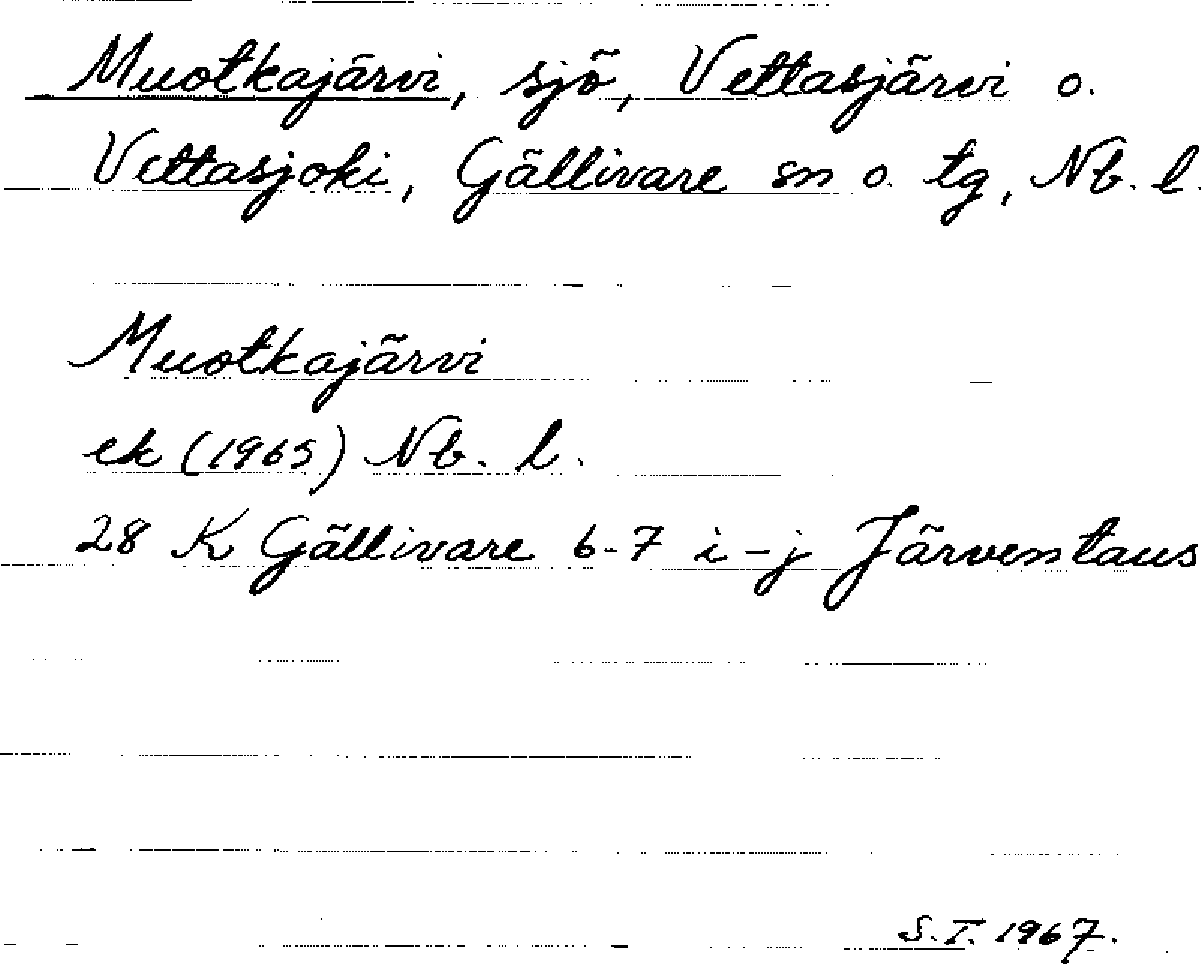 Muotkajärvi, sjö, Vettasjärvi o.
Vettasjoki, Gällivare sn o. tg, Nb. l.
Muotkajärvi
ek (1965) Nb. l.
28 K Gällivare 6-7 i-j Järventaus
S.T. 1967.